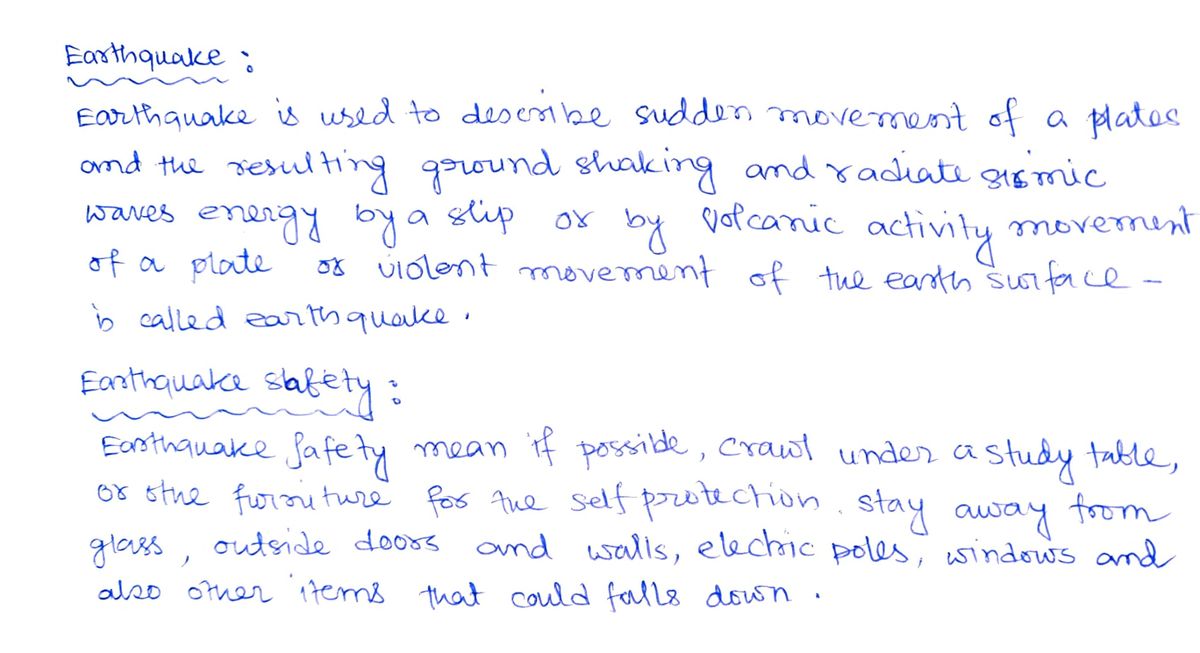 Earthquake :
Earthquake is used to describe sudden movement of a plates
and the resulting ground shaking and radiate sismic
waves energy by a slip or by volcanic activity movement
of a plate or violent movement of the earth surface -
is called earthquake.
Earthquake safety :
Earthquake safety mean if possible, crawl under a study table,
or othe furniture for the self protection. stay away from
glass, outside doors and walls, electric poles, windows and
also other items that could falls down.